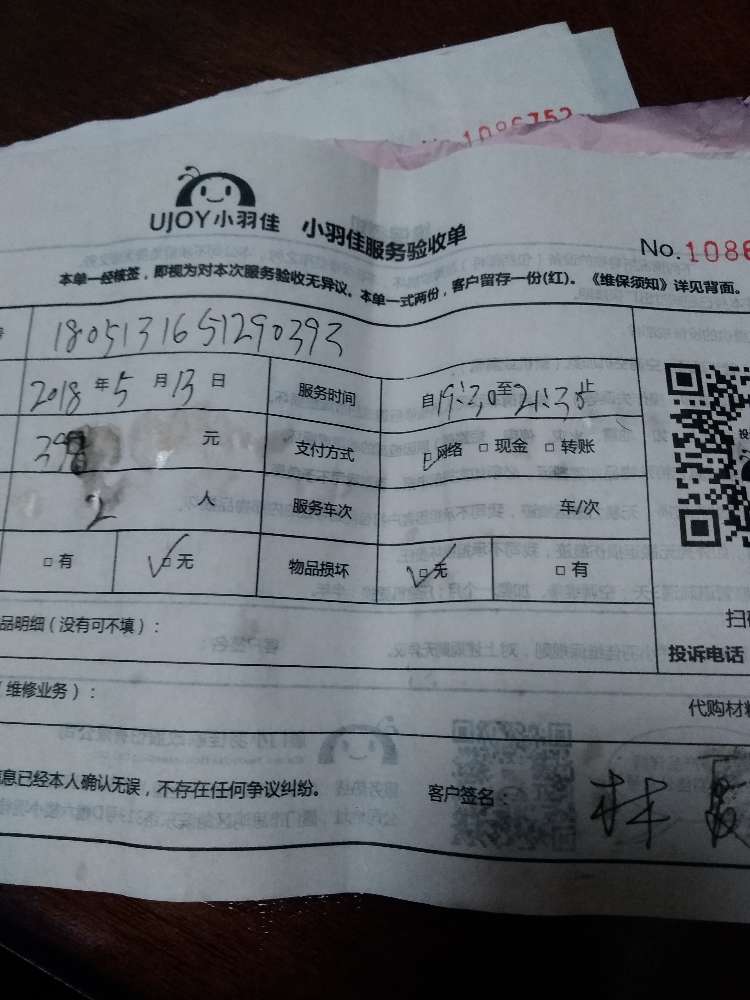 1086752
UJOY小羽佳 小羽佳服务验收单
No.1086
本单一经核签,即视为对本次服务验收无异议。本单一式两份,客户留存一份(红)。《维保须知》详见背面。
1805131651290393
2018年5月13日 服务时间 自19:30至21:30止
元 支付方式 □网络 □现金 □转账
2人 服务车次 车/次
□有 □无 物品损坏 □无 □有
品明细(没有可不填):
扫
投诉电话
(维修业务):
代购材料
息已经本人确认无误,不存在任何争议纠纷。 客户签名: 林